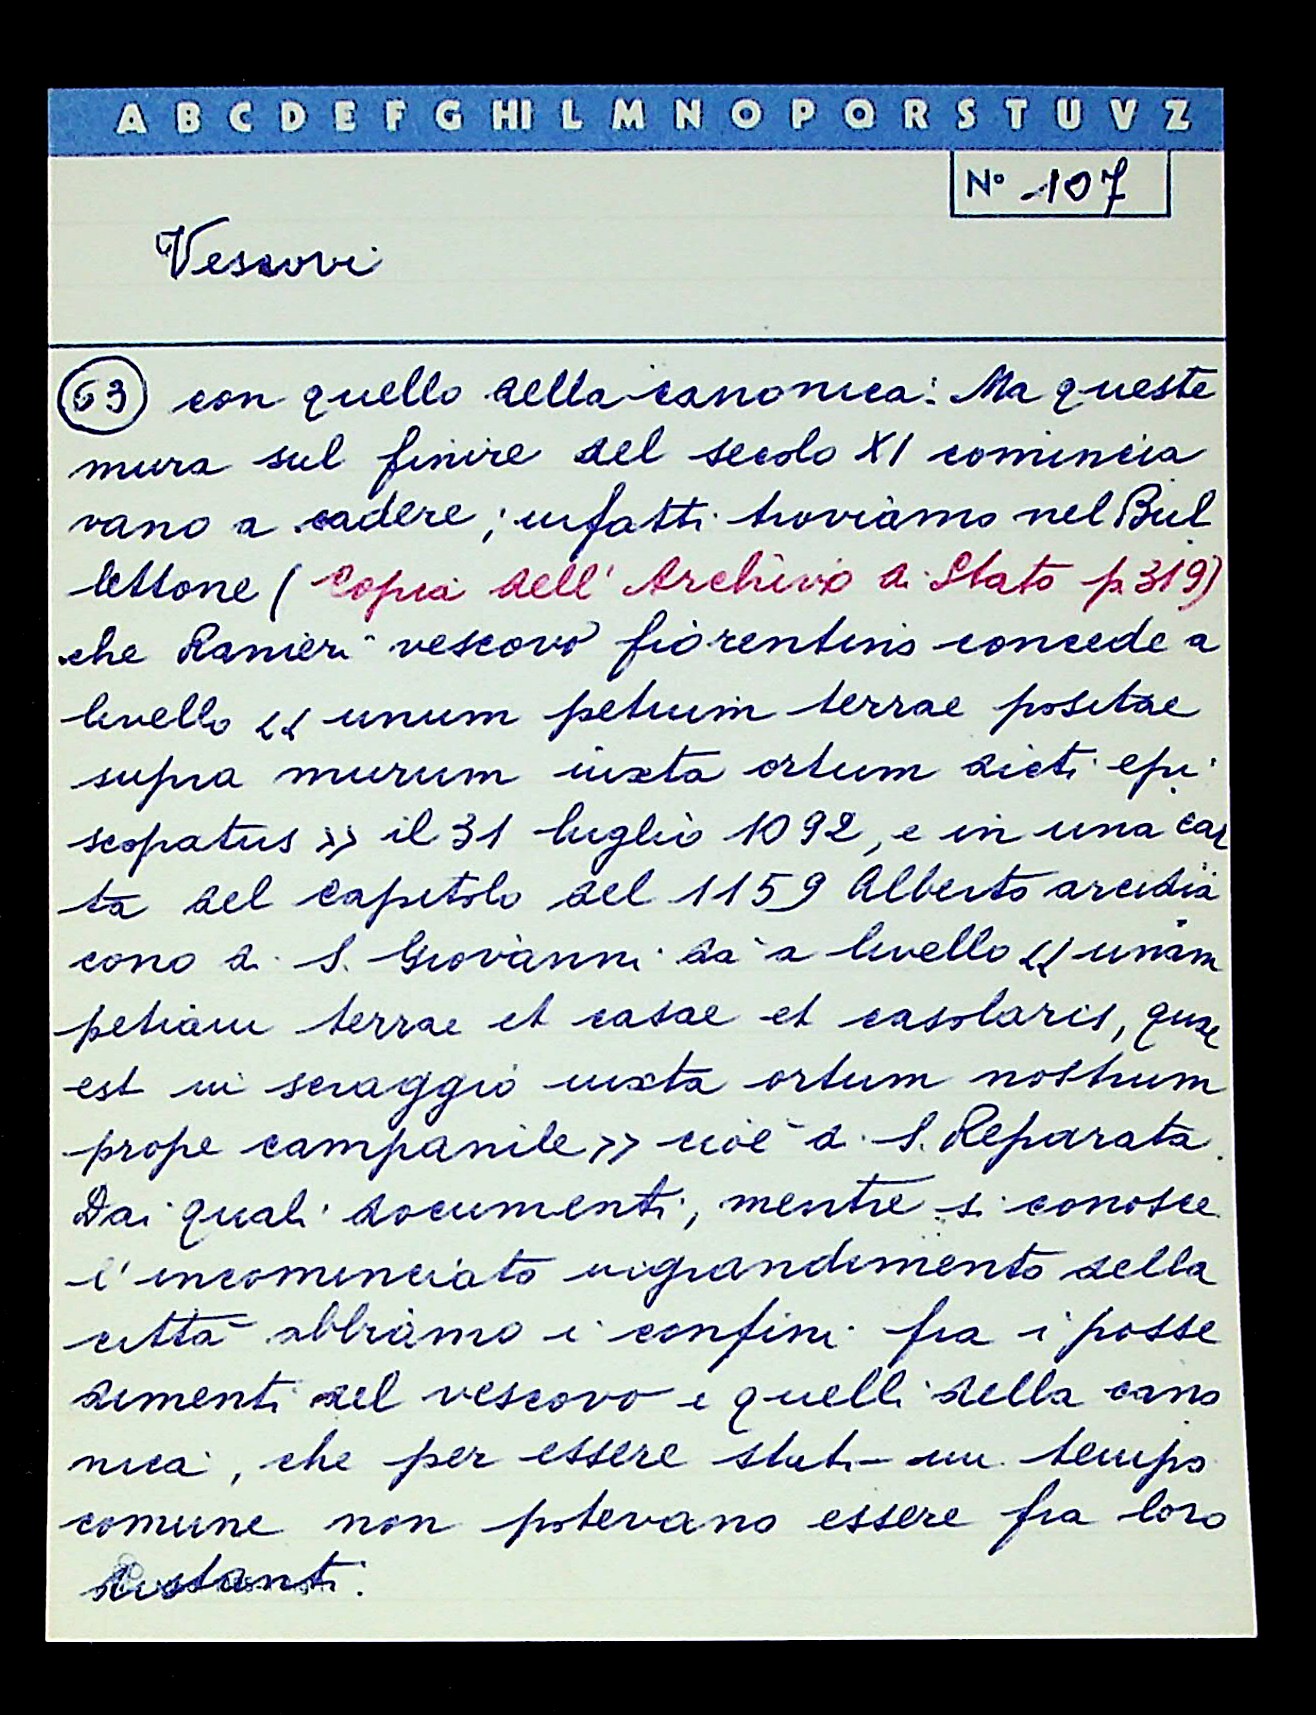 A B C D E F G HI L M N O P Q R S T U V Z
N° 107
Vescovi
63 con quello della canonica: Ma queste
mura sul finire del secolo XI comincia
vano a cadere; infatti troviamo nel Bul
lettone (Copia dell'Archivio di Stato p. 319)
che Ranieri vescovo fiorentino concede a
livello << unum petium terrae positae
supra murum iuxta ortum dicti epi
scopatus >> il 31 luglio 1092, e in una car
ta del Capitolo del 1159 Alberto arcidia
cono di S. Giovanni dà a livello << unam
petiam terrae et casae et casolaris, quae
est in scraggio iuxta ortum nostrum
prope campanile >> cioè di S. Reparata.
Dai quali documenti, mentre si conosce
l'incominciato ingrandimento della
città abbiamo i confini fra i posse
dimenti del vescovo e quelli della cano
nica, che per essere stati un tempo
comune non potevano essere fra loro
distanti.